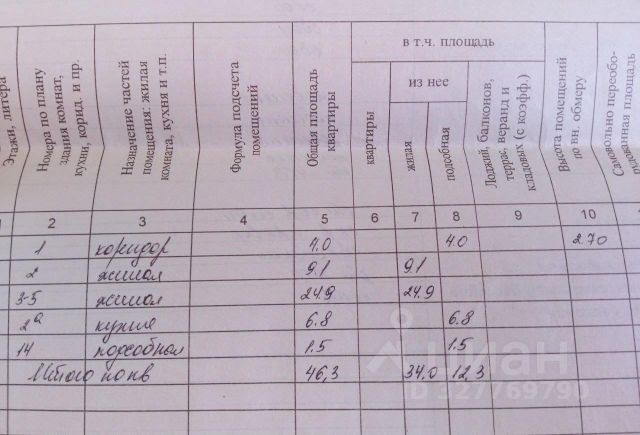 Этажи, литера
Номера по плану здания комнат, кухни, корид. и пр.
Назначение частей помещения: жилая комната, кухня и т.п.
Формула подсчета помещений
Общая площадь квартиры
в т.ч. площадь
из нее
квартиры
жилая
подсобная
Лоджий, балконов, террас, веранд и кладовых (с коэфф.)
Высота помещений по вн. обмеру
Самовольно переоборудованная площадь
2 3 4 5 6 7 8 9 10
1 коридор 4.0 4.0 2.70
2 жилая 9.1 9.1
3-5 жилая 24.9 24.9
2а кухня 6.8 6.8
14 подсобная 1.5 1.5
Итого по кв 46,3 34,0 12,3
циан
ID 327769790